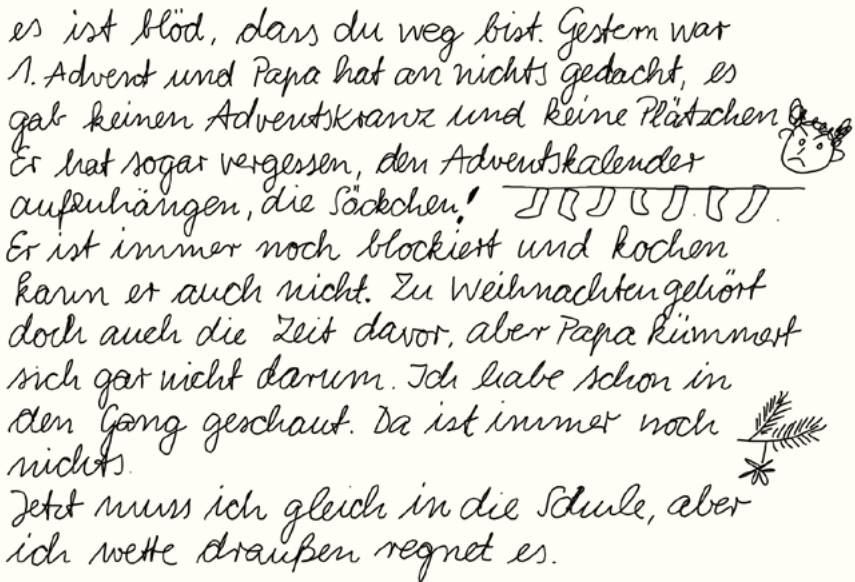 es ist blöd, dass du weg bist. Gestern war
1. Advent und Papa hat an nichts gedacht, es
gab keinen Adventskranz und keine Plätzchen
Er hat sogar vergessen, den Adventskalender
aufzuhängen, die Söckchen!
Er ist immer noch blockiert und kochen
kann er auch nicht. Zu Weihnachten gehört
doch auch die Zeit davor, aber Papa kümmert
sich gar nicht darum. Ich habe schon in
den Gang geschaut. Da ist immer noch
nichts.
Jetzt muss ich gleich in die Schule, aber
ich wette draußen regnet es.